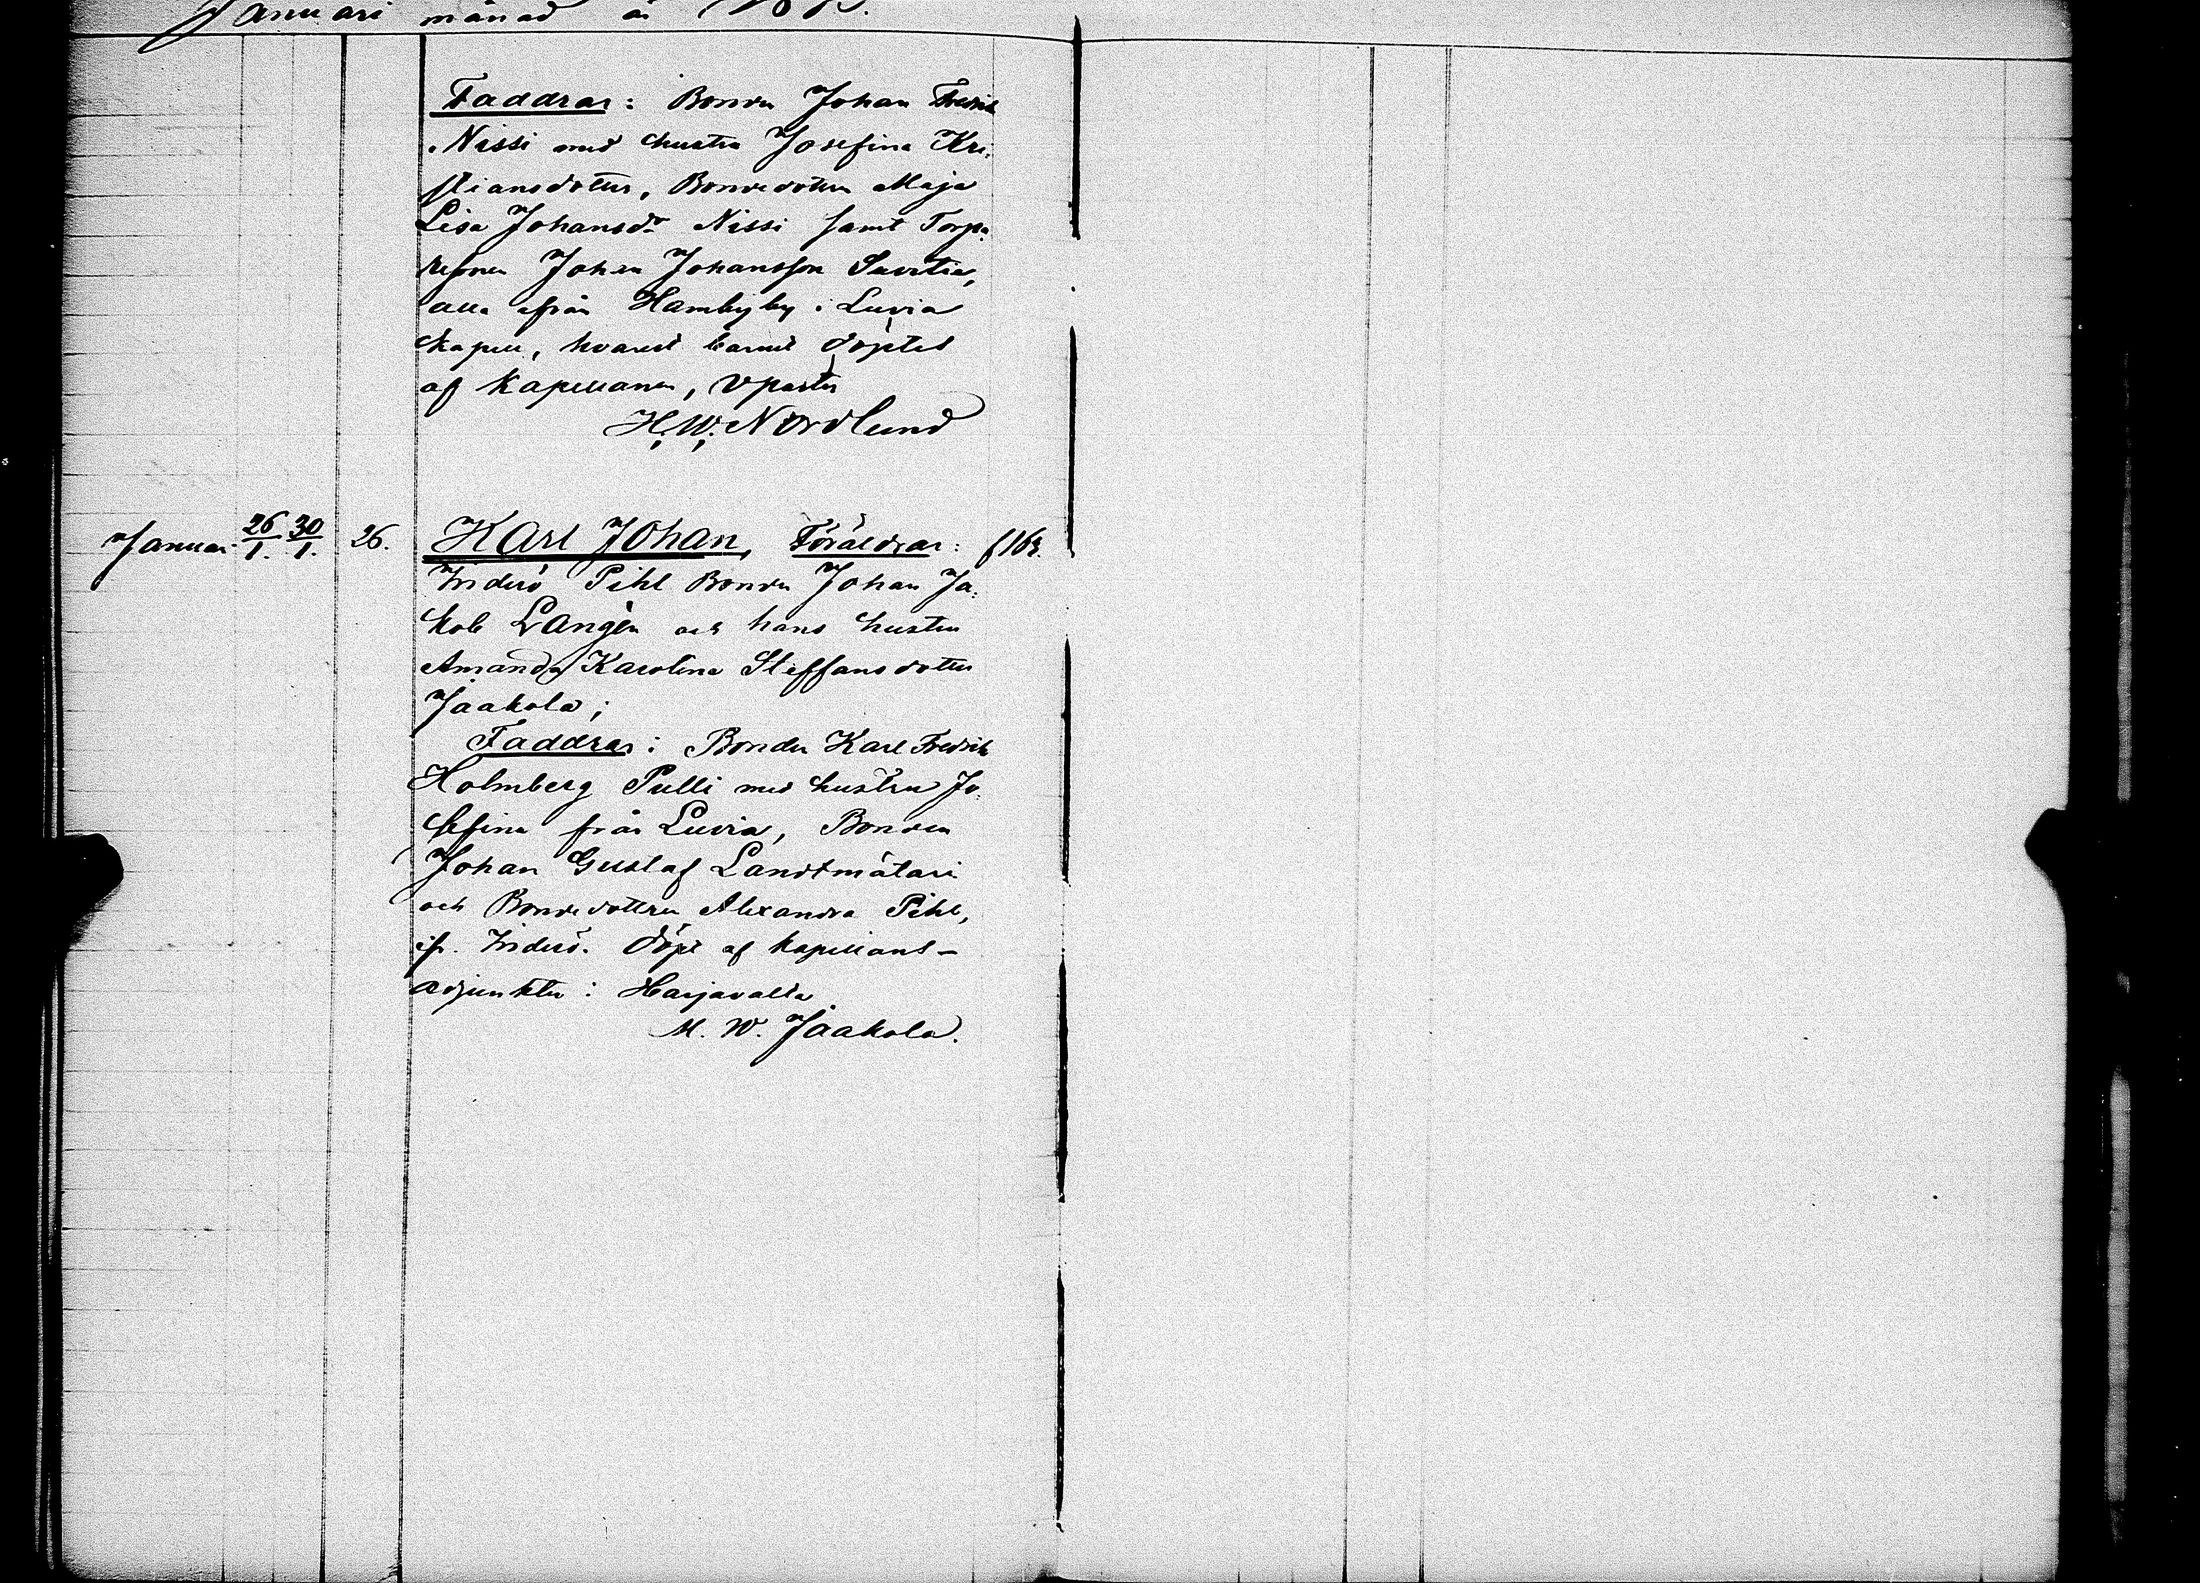 Januari månad år
Faddrar: Bonden Johan Fredrik
Nissi med hustru Josefina Kri-
stiansdotter, Bondedottern Maja
Lisa Johansdr Nissi samt Torpa-
resonen Johan Johansson
alla från Hamby by i Luvia
kapell, hvarest barnet döptes
af kapellanen, vpastor
H. W. Nordlund
Januari 26/1. 30/1. 26. Karl Johan, Föräldrar: f 163.
Inderö Pihl Bonden Johan Ja-
kob Langén och hans hustru
Amanda Karolina Steffansdotter
Jaakola;
Faddrar: Bonden Karl Fredrik
Holmberg Pulli med hustru Jo-
sefina från Luvia, Bonden
Johan Gustaf Landtmätari
och Bondedottren Alexandra Pihl,
ifr. Inderö. Döpt af kapellans-
adjunkten i Harjavalta
M. W. Jaakola.